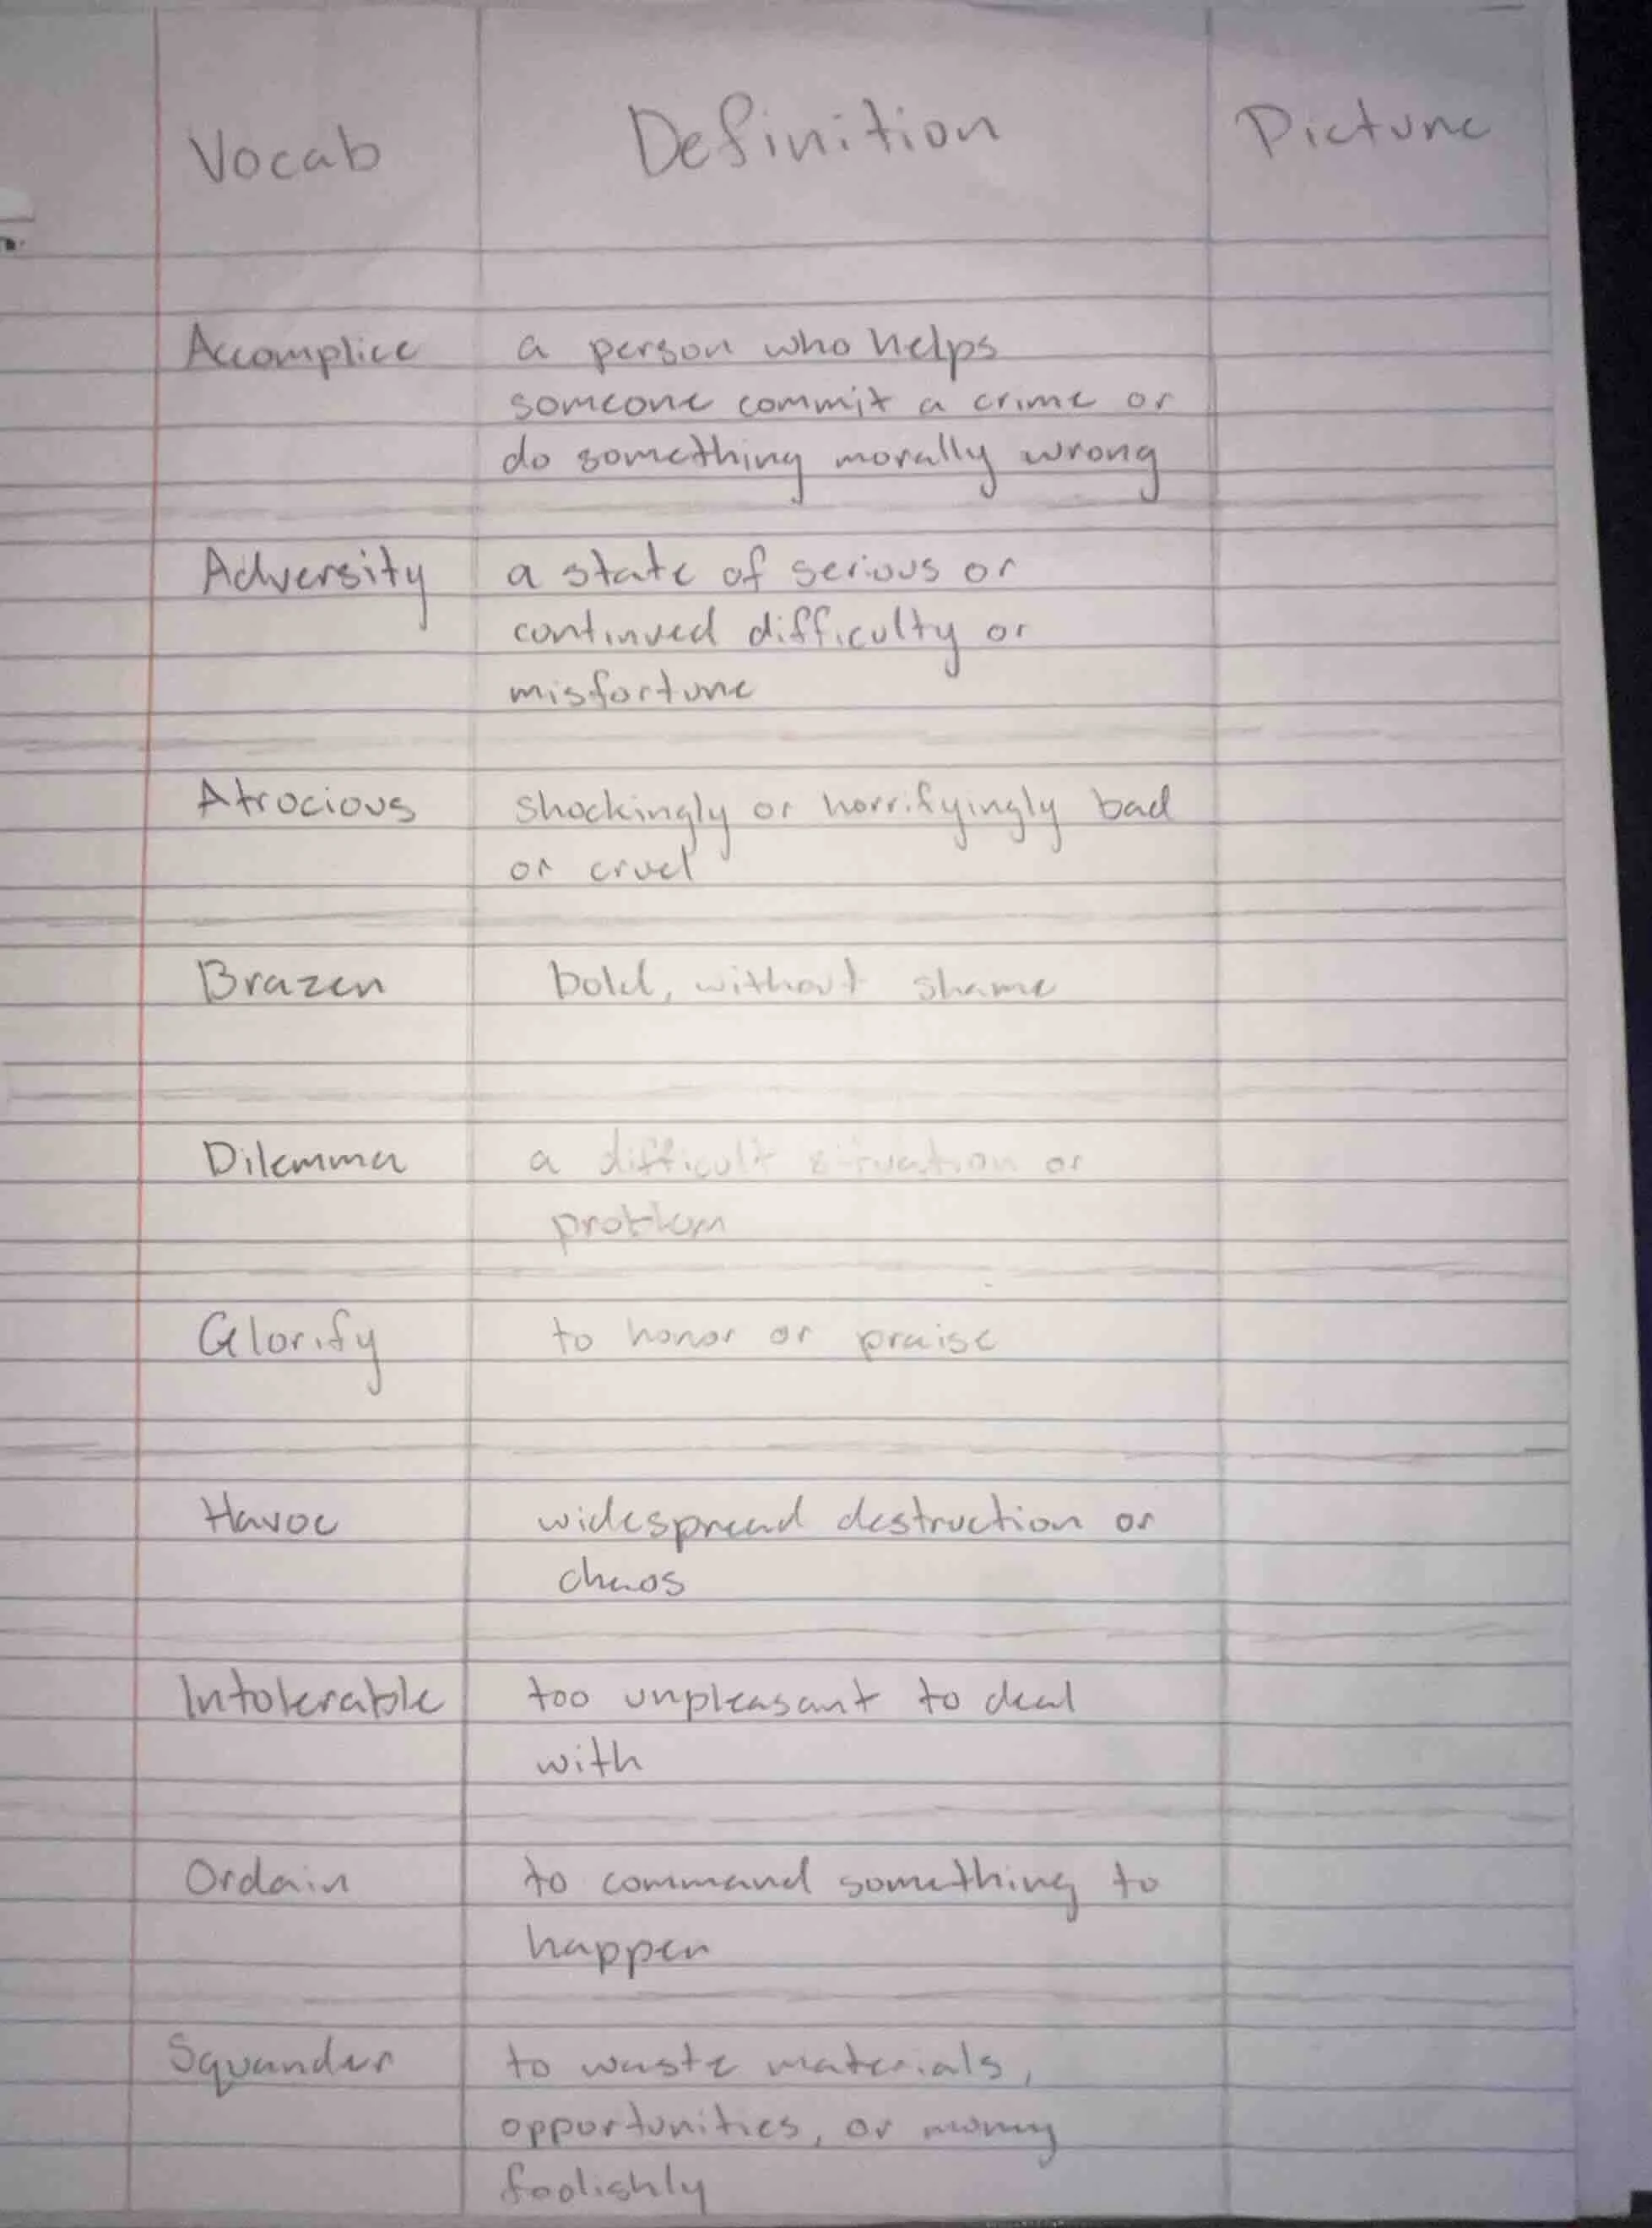 Vocab Definition Picture
Accomplice a person who helps
someone commit a crime or
do something morally wrong
Adversity a state of serious or
continued difficulty or
misfortune
Atrocious shockingly or horrifyingly bad
or cruel
Brazen bold, without shame
Dilemma a difficult situation or
problem
Glorify to honor or praise
Havoc widespread destruction or
chaos
Intolerable too unpleasant to deal
with
Ordain to command something to
happen
Squander to waste materials,
opportunities, or money
foolishly